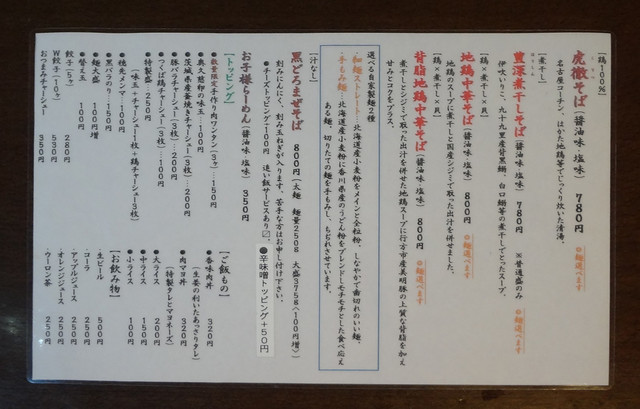 【鶏100%】
虎徹そば(醤油味 塩味) 780円 ◎麺選べます
名古屋コーチン、はかた地鶏等でじっくり炊いた清湯。
【煮干し】
豊潔煮干しそば(醤油味 塩味) 780円 ※普通盛のみ ◎麺選べます
伊吹いりこ、九十九里産背黒鰯、白口鰯等の煮干しでとったスープ。
【鶏×煮干し×貝】
地鶏中華そば(醤油味 塩味) 800円 ◎麺選べます
地鶏のスープに煮干しと国産シジミで取った出汁を併せました。
【鶏×煮干し×貝】
背脂地鶏中華そば(醤油味 塩味) 800円 ◎麺選べます
煮干しとシジミで取った出汁を併せた地鶏スープに行方市産美明豚の上質な背脂を加え
甘みとコクをプラス。
選べる自家製麺2種
・和麺ストレート……北海道産小麦粉をメインと全粒粉、しなやかで歯切れのいい麺。
・手もみ麺……北海道産小麦粉に香川県産のうどん粉をブレンドしモチモチとした食べ応え
ある麺、切りたての麺を手もみし、ちぢれさせています。
【汁なし】
黒どろまぜそば 800円(太麺 麺量250g 大盛375g(100円増)
刻みにんにく、刻み玉ねぎが入ります。苦手な方はお申し付け下さい。
●チーズトッピング+100円 追い飯サービスあり
●辛味増トッピング+50円
お子様らーめん(醤油味 塩味) 350円
【トッピング】
●数量限定手作り肉ワンタン(3ヶ)…150円
●奥久慈卵の味玉…100円
●茨城県産釜焼きチャーシュー(3枚)…300円
●豚バラチャーシュー(3枚)…200円
●つくば鶏チャーシュー(3枚)…100円
●特製盛…250円
(味玉+チャーシュー1枚+鶏チャーシュー3枚)
●穂先メンマ…100円
●黒バラのり…150円
●麺大盛…100円増
●替え玉 100円
餃子(5ヶ) 280円
W餃子(10ヶ) 530円
おつまみチャーシュー 350円
【ご飯もの】
●香味肉丼 320円
(生姜の利いたあっさりタレ)
●肉マヨ丼 320円
(特製タレとマヨネーズ)
●大ライス 200円
●中ライス 150円
●小ライス 100円
【お飲み物】
・生ビール 500円
・コーラ 250円
・アップルジュース 250円
・オレンジジュース 250円
・ウーロン茶 250円